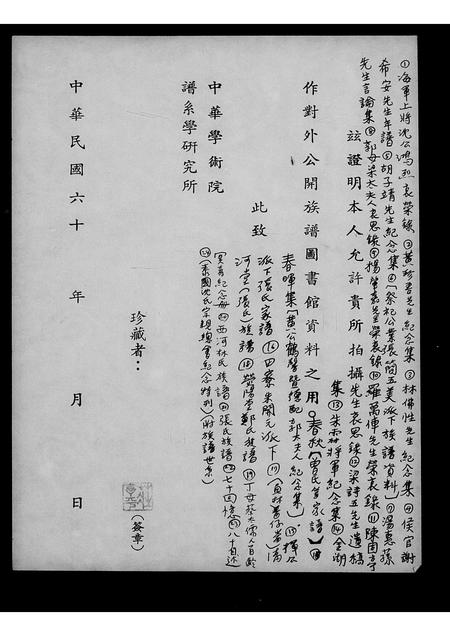 ①海軍上將沈公鴻烈哀榮錄②黃珍吾先生紀念集③林佛性先生紀念集④侯官謝
希安先生年譜⑤胡子靖先生紀念集⑥[祭祀公業張簡五美派下族譜資料]⑦湯惠蓀
先生言論集⑧郭母梁太夫人哀思錄⑨楊管北先生榮哀錄⑩羅萬俥先生榮哀錄⑪陳固亭
茲證明本人允許貴所拍攝先生哀思錄⑫梁詩五先生遺稿
集⑬朱霖將軍紀念集⑭金湖
作對外公開族譜圖書館資料之用。春秋[曾氏宗家譜]
春暉集[黃公鶴聲暨德配郭太夫人紀念集]⑮擇公
此致
派下張氏家譜⑯四寮朱開元派下⑰
河堂(張氏)族譜⑱滎陽堂鄭氏族譜⑲丁母蔡太孺人百齡
中華學術院
冥壽紀念冊⑳西河林氏族譜㉑張氏族譜㉒七十回憶㉓八十自述
譜系學研究所
㉔(泰國沈氏宗親總會紀念特刊)附族譜世系)
珍藏者：
(簽章)
中華民國六十 年 月 日